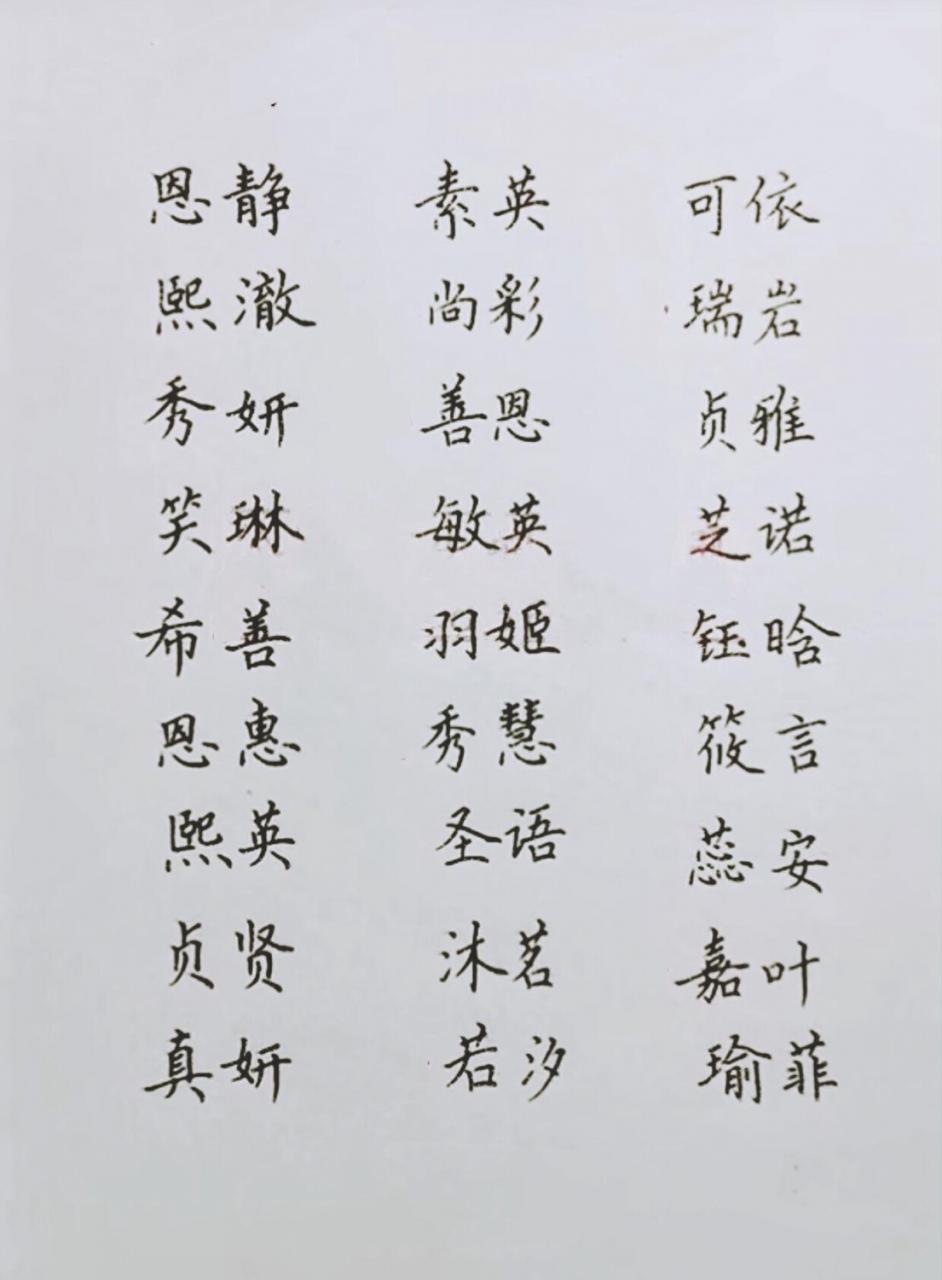 恩静 素英 可依
熙澈 尚彩 瑞岩
秀妍 善恩 贞雅
笑琳 敏英 芝诺
希善 羽姬 钰晗
恩惠 秀慧 筱言
熙英 圣语 蕊安
贞贤 沐茗 嘉叶
真妍 若汐 瑜菲